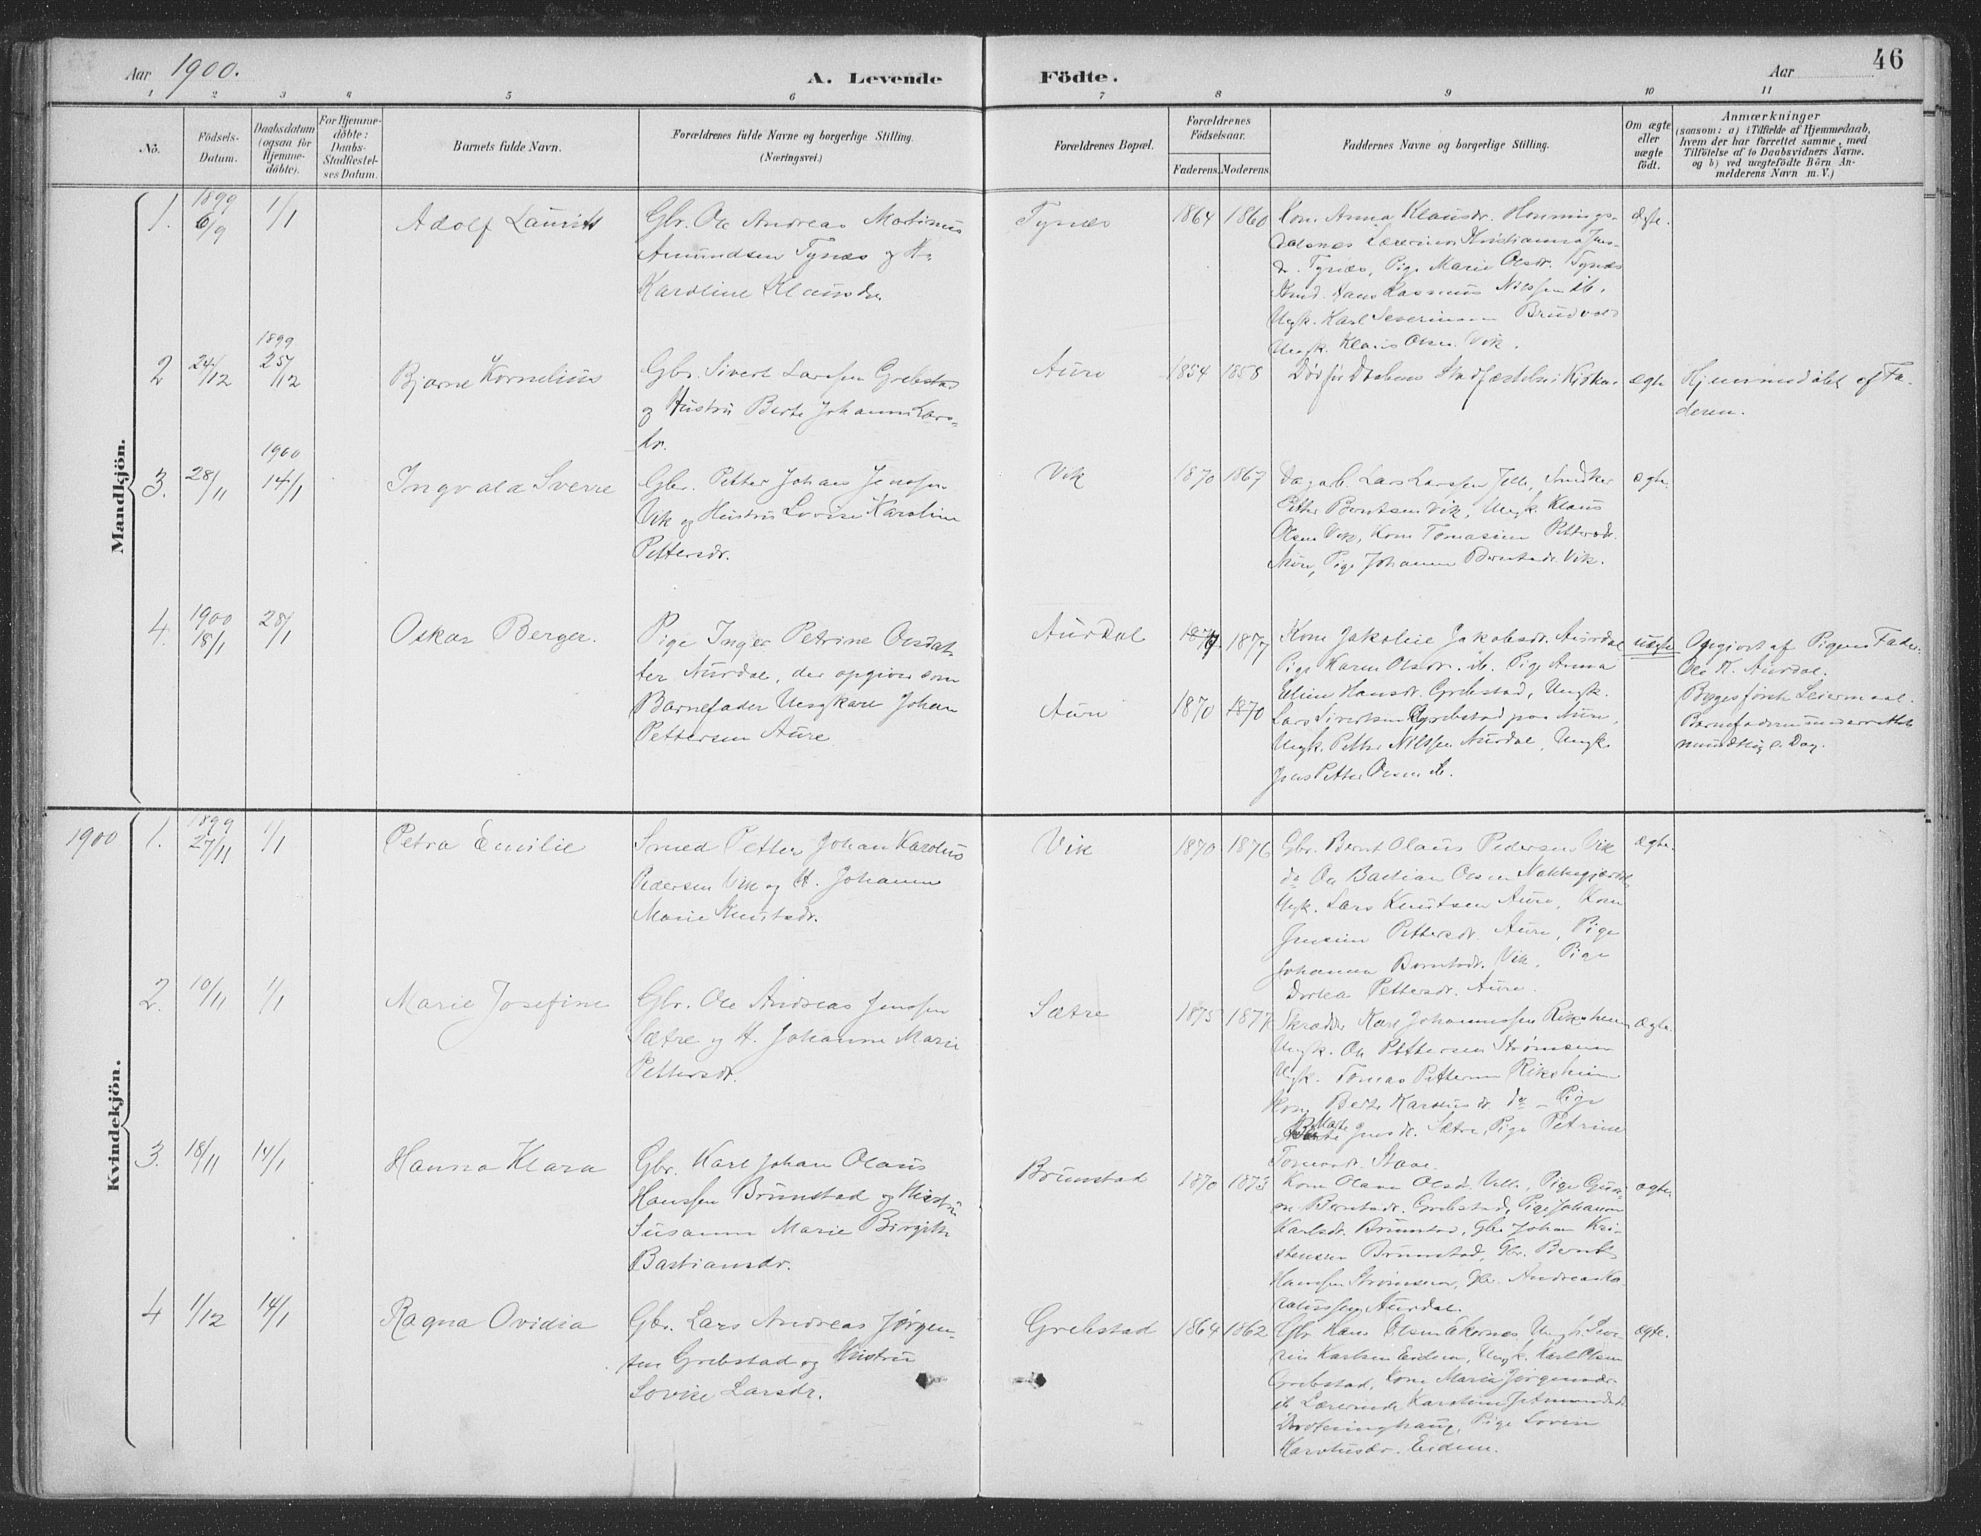 Aar 1900.
A. Levende Födte.
Aar
46
1 2 3 4 5 6 7 8 9 10 11
No.
Födsels-Datum.
Daabsdatum (ogsaa for Hjemmedöbte).
For Hjemmedöbte: Daabs-Stadfæstelses Datum.
Barnets fulde Navn.
Forældrenes fulde Navne og borgerlige Stilling.
(Næringsvei.)
Forældrenes Bopæl.
Forældrenes Födselsaar.
Faderens. Moderens.
Faddernes Navne og borgerlige Stilling.
Om ægte eller uægte födt.
Anmærkninger
(saasom: a) i Tilfælde af Hjemmedaab, hvem der har forrettet samme, med Tilföielse af to Daabsvidners Navne, og b) ved uægtefödte Börn Anmelderens Navn m. V.)
Mandkjön.
1. 1899 6/9 1/1 Adolf Lauritz
Gbr. Ole Andreas Martinus
Amundsen Tynæs og H.
Karoline Klausdr
Tynæs 1864 1860
Kone Anna Klausdr. Hennings-
dalsnes Lærerinde Kristianna Jens-
dr. Tynæs, Pige Marie Olsdr. Tynæs
Hans Rasmus Nilssen ib.
Ungk. Karl Severinsen Brudvold
Ungk. Klaus Olsen Vik.
ægte.
2 24/12 1899 25/12 Bjarne Kornelius
Gbr. Sivert Larssen Grebstad
og Hustru Berte Johanne Lars-
dr.
Aure 1854 1858
Död för Daabens Stadfæstelse i Kirken
ægte
Hjemmedöbt af Fa-
deren.
3. 28/11 1900 14/1 Ingvald Sverre
Gbr. Petter Johan Jensen
Vik og Hustru Lovise Karoline
Pettersdr.
Vik 1870 1867
Lars Larssen Snedker
Petter Berntsen Vik, Ungk. Klaus
Olsen Vik, Kone Tomasine Pettersdr.
Pige Johanne Berntsdr. Vik.
ægte.
4. 1900 18/1 28/1 Oskar Berger.
Pige Inger Petrine Olsdat-
ter Aurdal, der opgiver som
Barnefader Ungkarl Johan
Pettersen Aure
Aurdal 1877
Aure 1870 1870
Kone Jakobie Jakobsdr. Aurdal
Pige Karen Olsdr. ib. Pige Anna
Eline Hansdr. Grebstad, Ungk.
Lars Sivertsen Grebstad paa Aure,
Ungk. Petter Nilssen Aurdal, Ungk.
Jens Petter Olsen ib.
uægte
Opgivet af Pigens Fader
Ole K. Aurdal.
Begges förste Leiermaal.
Barnefaderen underrettet
mundtlig s. Dag.
Kvindekjön.
1900 1. 1899 27/11 1/1 Petra Emilie
Smed Petter Johan Karolus
Pedersen Vik og H. Johanne
Marie Knutsdr.
Vik 1870 1876
Gbr. Bernt Olaus Pedersen Vik
do Ole Bastian Olsen
Ungk. Lars Knutsen Aure, Kone
Jensine Pettersdr. Aure, Pige
Johanna Berntsdr. Vik, Pige
Dortea Pettersdr. Aure.
ægte.
2. 10/11 1/1 Marie Josefine
Gbr. Ole Andreas Jenssen
Sætre og H. Johanne Marie
Pettersdr.
Sætre 1875 1877
Skrædder Karl Johannessen Riksheim
Ungk. Ole Pettersen Strømmen
Ungk. Tomas Pettersen Riksheim
Kone Berte Karolusdr. do Pige
Marte Jensdr. Sætre, Pige Petrine
ægte.
3. 18/11 14/1 Hanna Klara
Gbr. Karl Johan Olaus
Hanssen Brunstad og Hustru
Susanne Marie Birgitte
Bastiansdr.
Brunstad 1870 1873
Kone Olava Olsdr. Velle, Pige
Berntsdr. Grebstad, Pige Johanne
Karlsdr. Brunstad, Gbr Johan Kri-
stensen Brunstad, Gbr. Bernt
Hanssen Strømmen, Gbr. Andreas Ka-
rolussen Aurdal.
ægte
4 1/12 14/1 Ragna Ovidia
Gbr. Lars Andreas Jørgen-
sen Grebstad og Hustru
Lovise Larsdr.
Grebstad 1864 1862
Gbr. Hans Olsen Ekornes, Ungk. Seve-
rin Karlsen Eidem, Ungk. Karl Olsen
Grebstad, Kone Marie Jørgensdr.
ib. Lærerinde Karoline
Pige Lovise
Karolusdr. Eidem.
ægte.